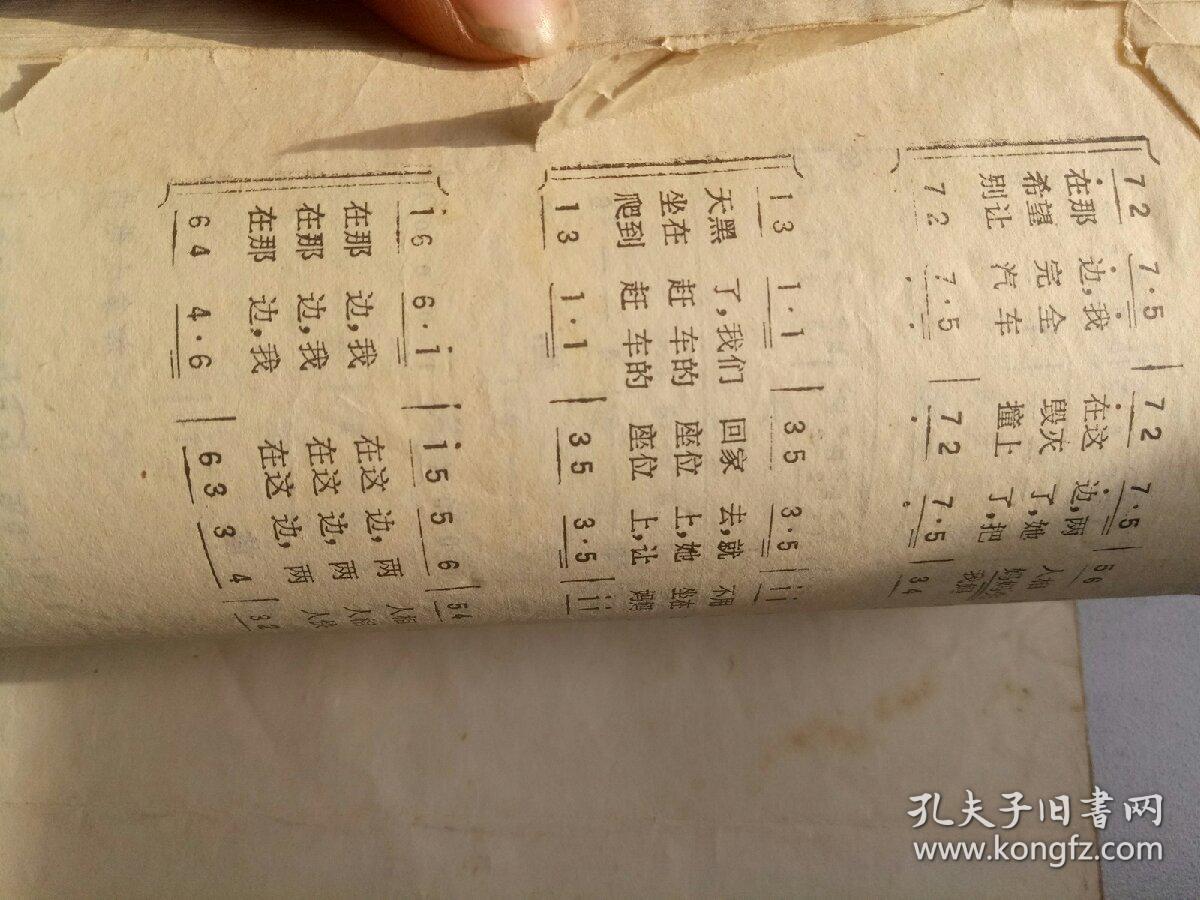 7 2 7·5 | 7 2 7·5 | 5 6
在那 边,我 在这 边,两
希望 完全 毁灭 了,她
别让 汽车 撞上 了,把
7 2 7·5 | 7 2 7·5 | 3 4
1 3 1·1 | 3 5 3·5 | i i
天黑 了,我们 回家 去,就 不用
坐在 赶车的 座位 上,她 坐在
爬到 赶车的 座位 上,让
1 3 1·1 | 3 5 3·5 | i i
i 6 6·i | i 5 5 6 | 5 4
在那 边,我 在这 边,两 人
在那 边,我 在这 边,两 人
在那 边,我 在这 边,两 人
6 4 4·6 | 6 3 3 4 | 3 2
孔夫子旧书网
www.kongfz.com